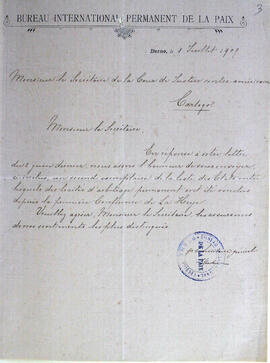 3
BUREAU INTERNATIONAL PERMANENT DE LA PAIX
Berne, le 1 Juillet 1909
Monsieur le Secrétaire de la Cour de Justice centre américaine
Cartago
Monsieur le Secrétaire,
En réponse à votre lettre
du 2 juin dernier, nous avons l'honneur de vous envoyer,
un second exemplaire de la liste des Etats entre
lesquels des traités d'arbitrage permanent ont été conclus
depuis la première Conférence de La Haye.
Veuillez agréer, Monsieur le Secrétaire, les assurances
de nos sentiments les plus distingués.
DE LA PAIX